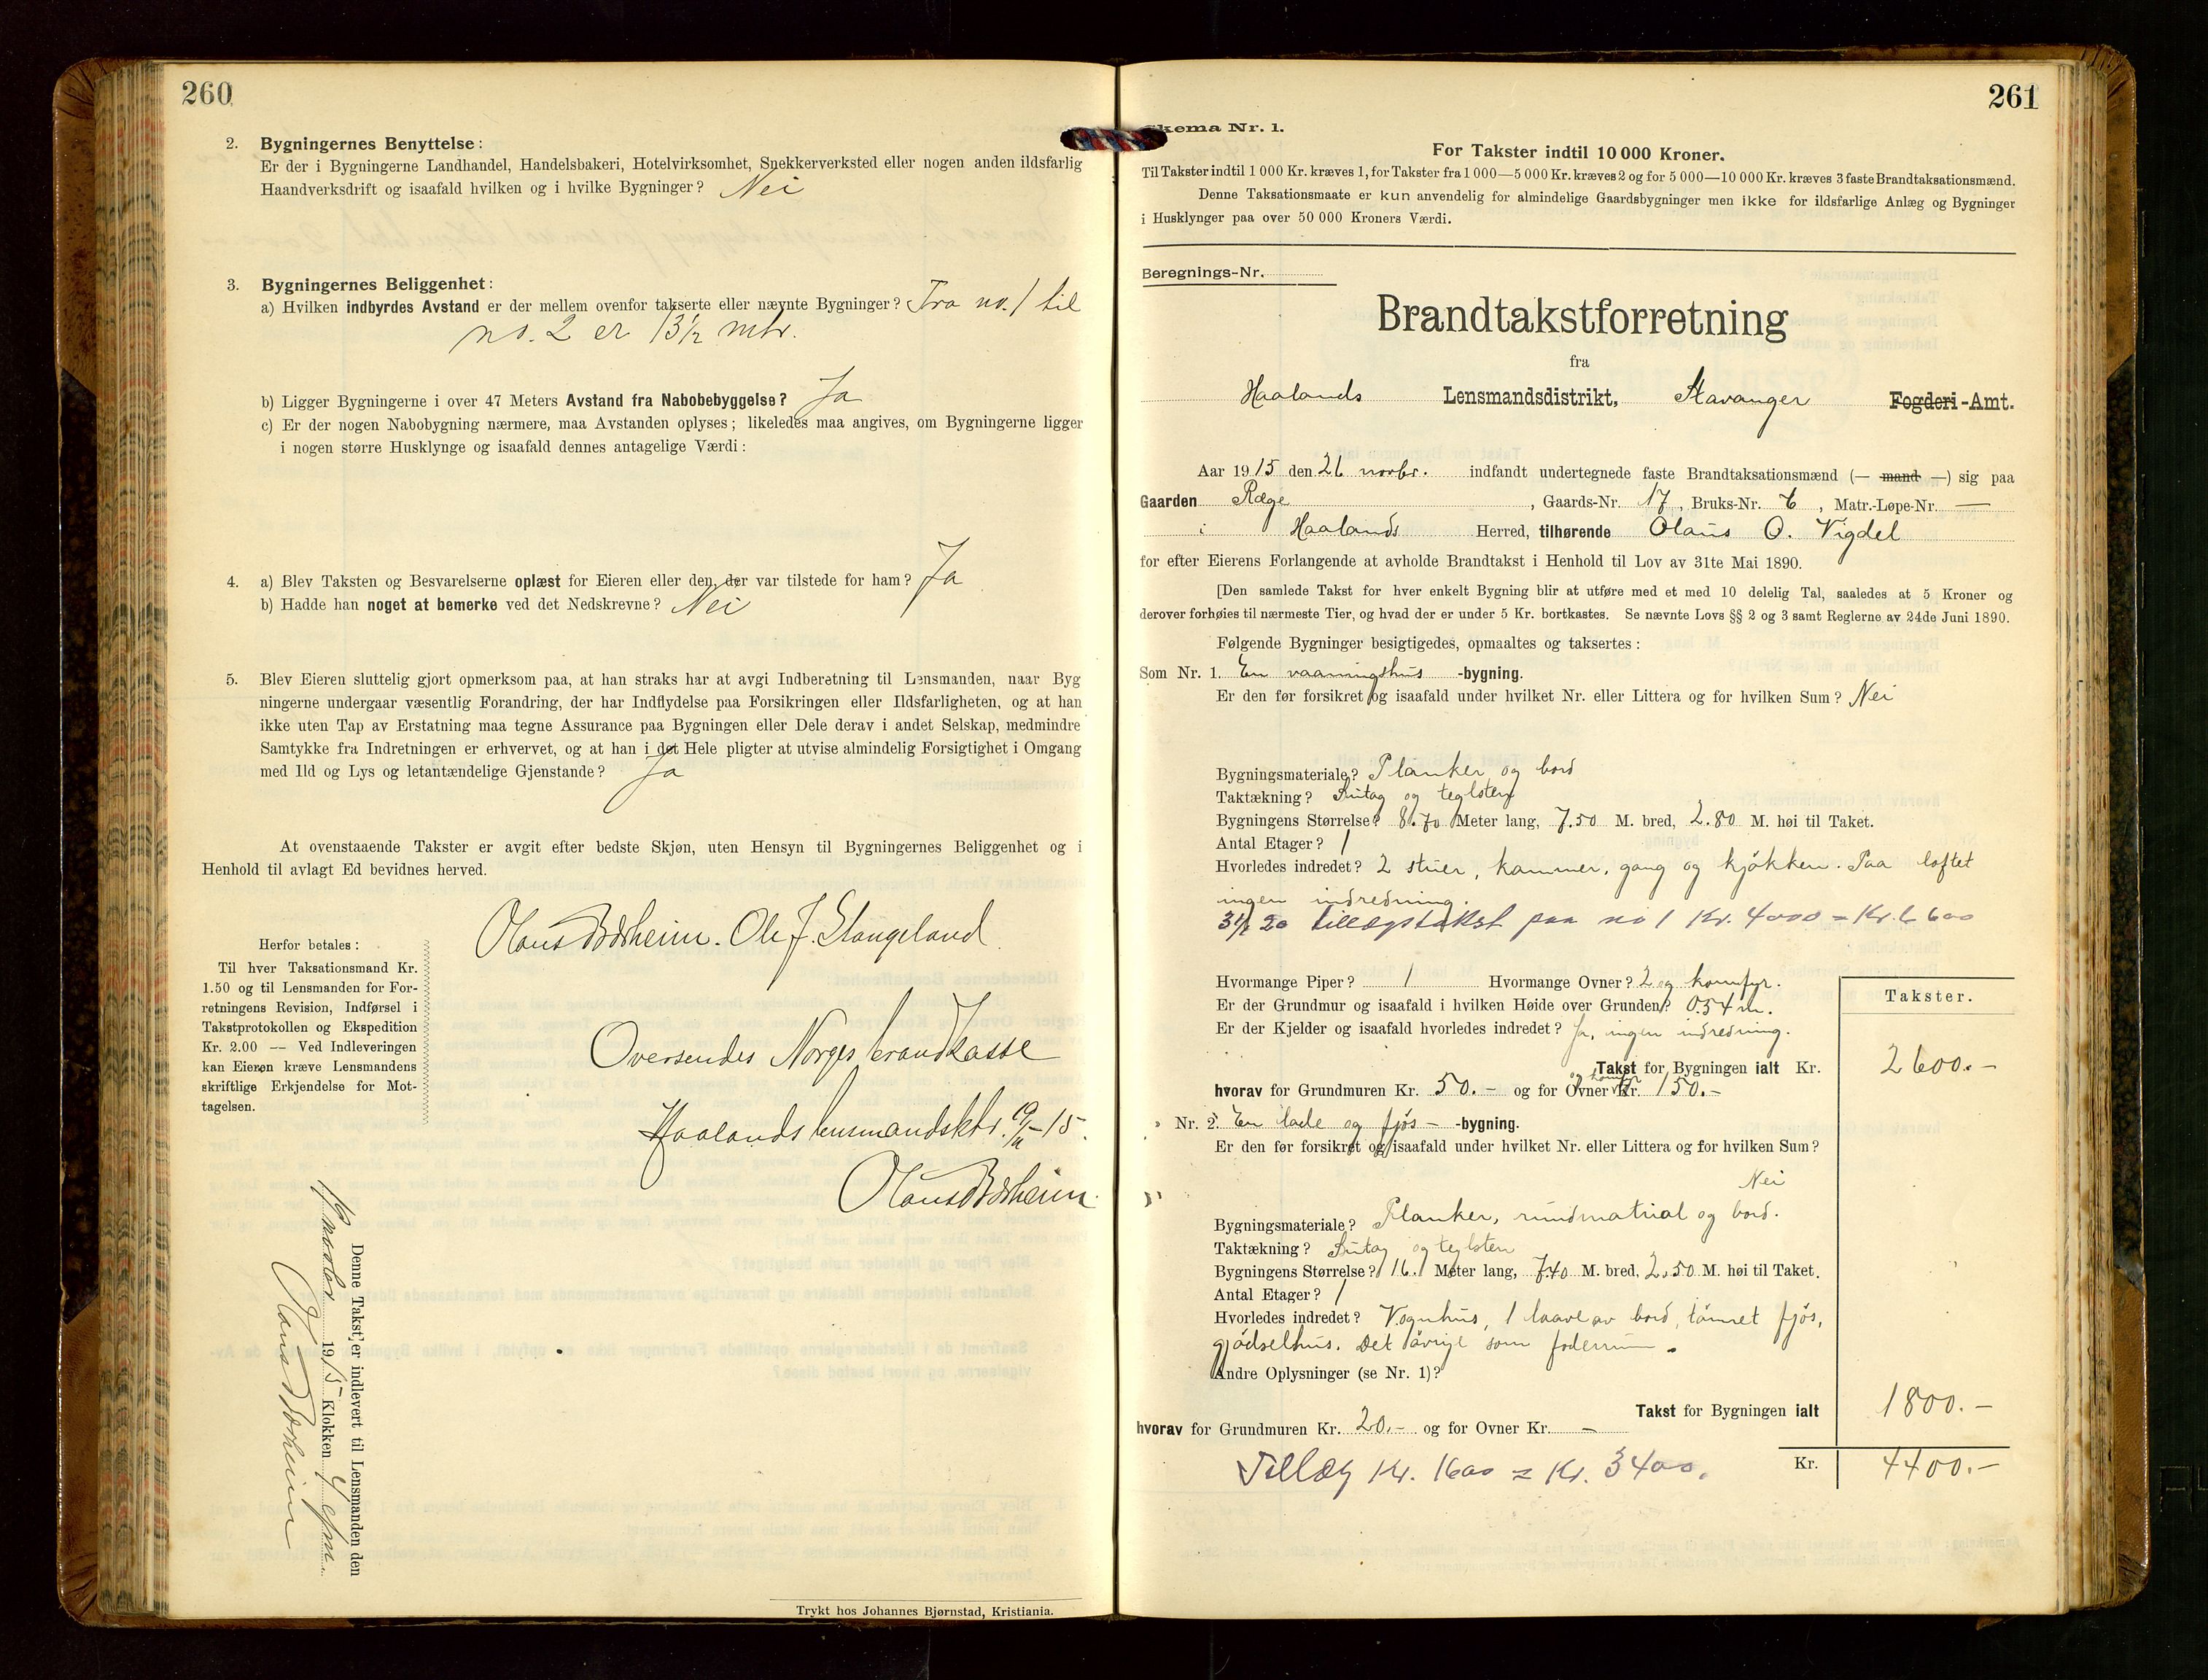 260
2. Bygningernes Benyttelse:
Er der i Bygningerne Landhandel, Handelsbakeri, Hotelvirksomhet, Snekkerverksted eller nogen anden ildsfarlig
Haandverksdrift og isaafald hvilken og i hvilke Bygninger? Nei
3. Bygningernes Beliggenhet:
a) Hvilken indbyrdes Avstand er der mellem ovenfor takserte eller nævnte Bygninger? Fra no. 1 til
no. 2 er 13½ mtr.
b) Ligger Bygningerne i over 47 Meters Avstand fra Nabobebyggelse? Ja
c) Er der nogen Nabobygning nærmere, maa Avstanden oplyses; likeledes maa angives, om Bygningerne ligger
i nogen større Husklynge og isaafald dennes antagelige Værdi:
4. a) Blev Taksten og Besvarelserne oplæst for Eieren eller den, der var tilstede for ham? Ja
b) Hadde han noget at bemerke ved det Nedskrevne? Nei
5. Blev Eieren sluttelig gjort opmerksom paa, at han straks har at avgi Indberetning til Lensmanden, naar Byg
ningerne undergaar væsentlig Forandring, der har Indflydelse paa Forsikringen eller Ildsfarligheten, og at han
ikke uten Tap av Erstatning maa tegne Assurance paa Bygningen eller Dele derav i andet Selskap, medmindre
Samtykke fra Indretningen er erhvervet, og at han i det Hele pligter at utvise almindelig Forsigtighet i Omgang
med Ild og Lys og letantændelige Gjenstande? Ja
At ovenstaaende Takster er avgit efter bedste Skjøn, uten Hensyn til Bygningernes Beliggenhet og i
Henhold til avlagt Ed bevidnes herved.
Olaus Bærheim. Ole J. Stangeland
Herfor betales:
Til hver Taksationsmand Kr.
1.50 og til Lensmanden for For-
retningens Revision, Indførsel i
Takstprotokollen og Ekspedition
Kr. 2.00 — Ved Indleveringen
kan Eieren kræve Lensmandens
skriftlige Erkjendelse for Mot-
tagelsen.
Oversendes Norges brandkasse
Haalands lensmandsktr. 19/11-15.
Olaus Bærheim.
Denne Takst er indlevert til Lensmanden den
novbr 1915 Klokken 4 efm
Olaus Bærheim
Trykt hos Johannes Bjørnstad, Kristiania.
261
Skema Nr. 1.
For Takster indtil 10 000 Kroner.
Til Takster indtil 1 000 Kr. kræves 1, for Takster fra 1 000—5 000 Kr. kræves 2 og for 5 000—10 000 Kr. kræves 3 faste Brandtaksationsmænd.
Denne Taksationsmaate er kun anvendelig for almindelige Gaardsbygninger men ikke for ildsfarlige Anlæg og Bygninger
i Husklynger paa over 50 000 Kroners Værdi.
Beregnings-Nr.
Brandtakstforretning
fra
Haalands Lensmandsdistrikt, Stavanger Fogderi-Amt.
Aar 1915 den 26 novbr. indfandt undertegnede faste Brandtaksationsmænd (— mand —) sig paa
Gaarden Ræge, Gaards-Nr. 17, Bruks-Nr. 6, Matr.-Løpe-Nr. —
i Haalands Herred, tilhørende Olaus O. Vigdel
for efter Eierens Forlangende at avholde Brandtakst i Henhold til Lov av 31te Mai 1890.
[Den samlede Takst for hver enkelt Bygning blir at utføre med et med 10 delelig Tal, saaledes at 5 Kroner og
derover forhøies til nærmeste Tier, og hvad der er under 5 Kr. bortkastes. Se nævnte Lovs §§ 2 og 3 samt Reglerne av 24de Juni 1890.
Følgende Bygninger besigtigedes, opmaaltes og taksertes:
Som Nr. 1. En vaaningshus -bygning.
Er den før forsikret og isaafald under hvilket Nr. eller Littera og for hvilken Sum? Nei
Bygningsmateriale? Planker og bord
Taktækning? Sutag og teglsten
Bygningens Størrelse? 8.70 Meter lang, 7.50 M. bred, 2.80 M. høi til Taket.
Antal Etager? 1
Hvorledes indredet? 2 stuer, kammer, gang og kjøkken. Paa loftet
ingen indredning.
20 tillægstakst paa no 1 Kr. 4000 = Kr. 6600
Hvormange Piper? 1 Hvormange Ovner? 2 og komfyr.
Er der Grundmur og isaafald i hvilken Høide over Grunden? 0.54 m.
Er der Kjelder og isaafald hvorledes indredet? Ja, ingen indredning.
Takster.
Takst for Bygningen ialt Kr. 2600.-
hvorav for Grundmuren Kr. 50.- og for Ovner og komfyr Kr. 150.-
Nr. 2. En lade og fjøs - -bygning.
Er den før forsikret og isaafald under hvilket Nr. eller Littera og for hvilken Sum?
Nei
Bygningsmateriale? Planker, rundmatrial og bord.
Taktækning? Sutag og teglsten
Bygningens Størrelse? 16.1 Meter lang, 7.40 M. bred, 2.50 M. høi til Taket.
Antal Etager? 1
Hvorledes indredet? Vognhus, 1 laave av bord, tømret fjøs,
gjødselhus. Det øvrige som foderrum.
Andre Oplysninger (se Nr. 1)?
Takst for Bygningen ialt 1800.-
hvorav for Grundmuren Kr. 20.- og for Ovner Kr. -
Kr. 4400.-
Tillæg Kr. 1600 = Kr. 3400.